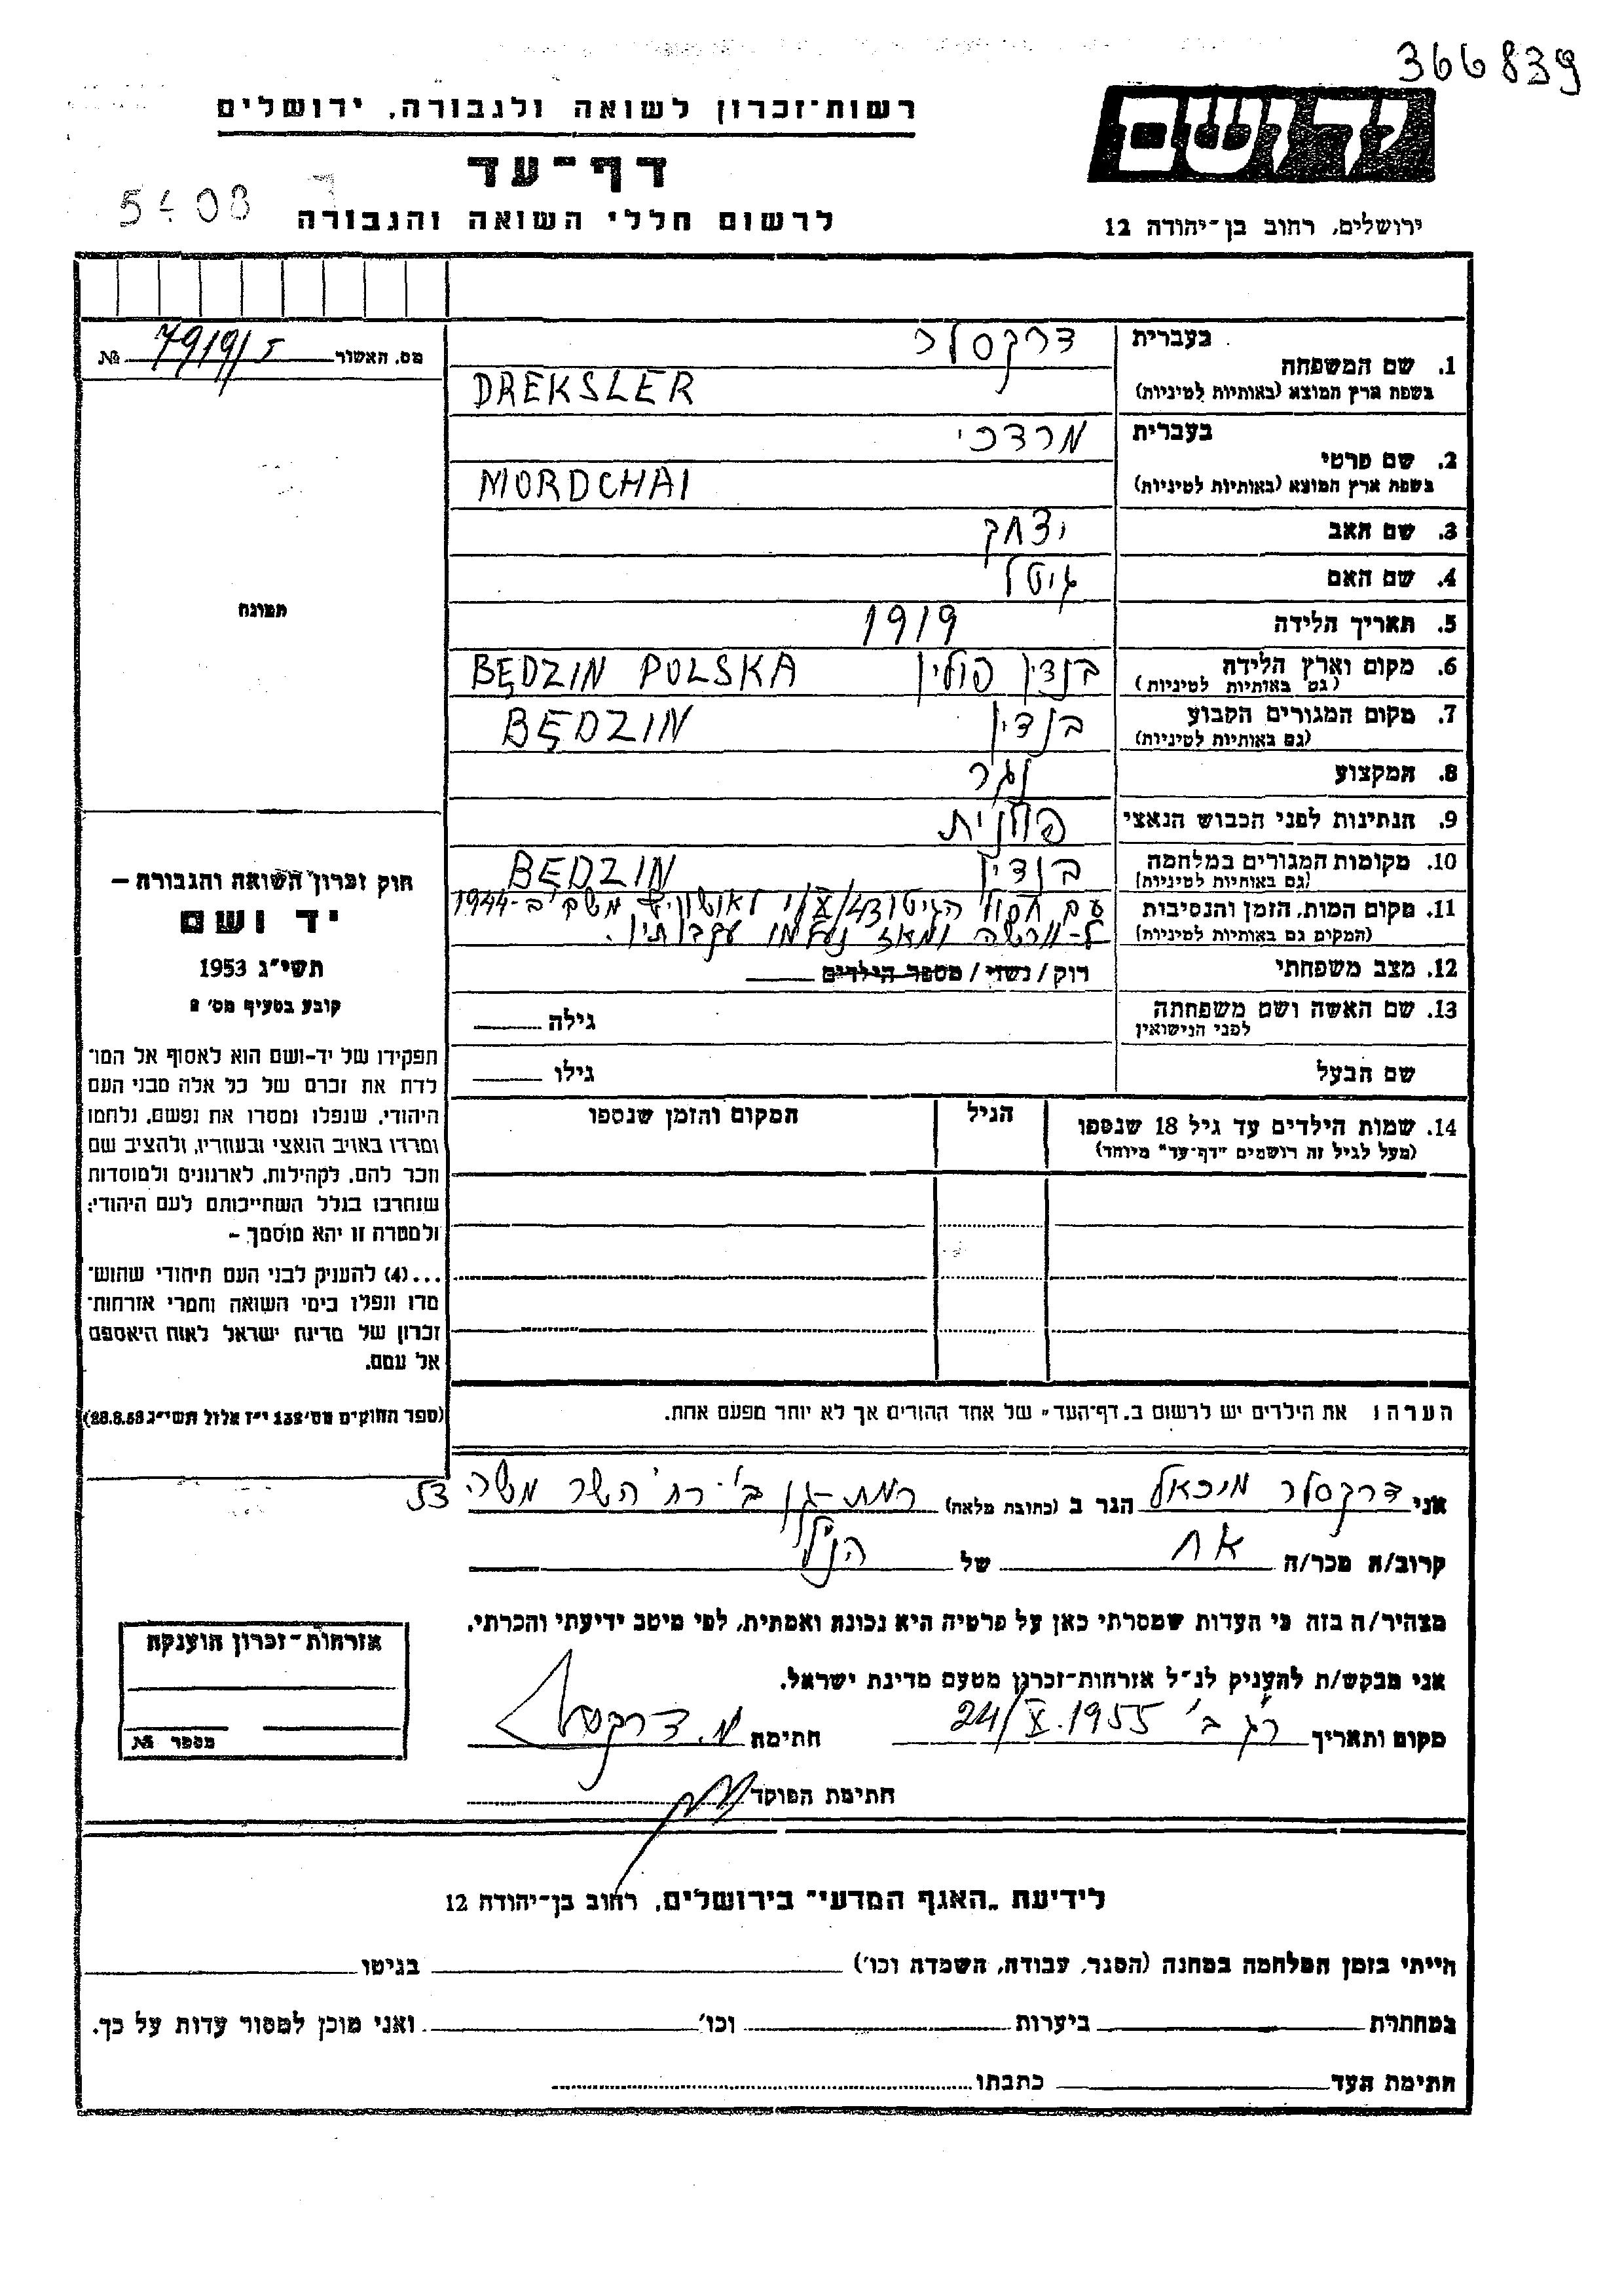 366839
רשות-זכרון לשואה ולגבורה, ירושלים
יד ושם
דף-עד
לרשום חללי השואה והגבורה
ירושלים, רחוב בן-יהודה 12
מס. האשור 7919/I №
תמונה
1. שם המשפחה
בעברית דרקסלר
בשפת ארץ המוצא (באותיות לטיניות) DREKSLER
2. שם פרטי
בעברית מרדכי
בשפת ארץ המוצא (באותיות לטיניות) MORDCHAI
3. שם האב יצחק
4. שם האם גיטל
5. תאריך הלידה 1919
6. מקום וארץ הלידה בנדין פולין BĘDZIN POLSKA
(גם באותיות לטיניות)
7. מקום המגורים הקבוע בנדין BĘDZIN
(גם באותיות לטיניות)
8. המקצוע נגר
9. הנתינות לפני הכבוש הנאצי פולנית
10. מקומות המגורים במלחמה בנדין BĘDZIN
(גם באותיות לטיניות)
11. מקום המות, הזמן והנסיבות עם חסול הגיטו 1/X/43 לאושוויץ משם ב-1944
(המקום גם באותיות לטיניות) ל-וורשה ומאז נעלמו עקבותיו.
12. מצב משפחתי רוק/נשוי/מספר הילדים
13. שם האשה ושם משפחתה גילה
לפני הנישואין
שם הבעל גילו
14. שמות הילדים עד גיל 18 שנספו הגיל המקום והזמן שנספו
(מעל לגיל זה רושמים "דף-עד" מיוחד)
הערה: את הילדים יש לרשום ב"דף-העד" של אחד ההורים אך לא יותר מפעם אחת.
חוק זכרון השואה והגבורה –
יד ושם
תשי"ג 1953
קובע בסעיף מס' 2
תפקידו של יד-ושם הוא לאסוף אל המו-
לדת את זכרם של כל אלה מבני העם
היהודי, שנפלו ומסרו את נפשם, נלחמו
ומרדו באויב הנאצי ובעוזריו, ולהציב שם
וזכר להם, לקהילות, לארגונים ולמוסדות
שנחרבו בגלל השתייכותם לעם היהודי;
ולמטרה זו יהא מוסמך –
...(4) להעניק לבני העם היהודי שהוש-
מדו ונפלו בימי השואה והמרי אזרחות-
זכרון של מדינת ישראל לאות היאספם
אל עמם.
(ספר החוקים מס' 132 י"ז אלול תשי"ג 28.8.53)
אני דרקסלר מיכאל הגר ב (כתובת מלאה) רמת-גן ב'- רח' השר משה 53
קרוב/ה מכר/ה אח של הנ"ל
מצהיר/ה בזה כי העדות שמסרתי כאן על פרטיה היא נכונה ואמתית, לפי מיטב ידיעתי והכרתי.
אני מבקש/ת להעניק לנ"ל אזרחות-זכרון מטעם מדינת ישראל.
מקום ותאריך ר"ג ב' 24/X.1955 חתימה מ. דרקסלר
חתימת הפוקד
אזרחות-זכרון הוענקה
מספר №
לידיעת "האגף המדעי" בירושלים, רחוב בן-יהודה 12
הייתי בזמן המלחמה במחנה (הסגר, עבודה, השמדה וכו') בגיטו
במחתרת ביערות וכו' ואני מוכן למסור עדות על כך.
חתימת העד כתבתו